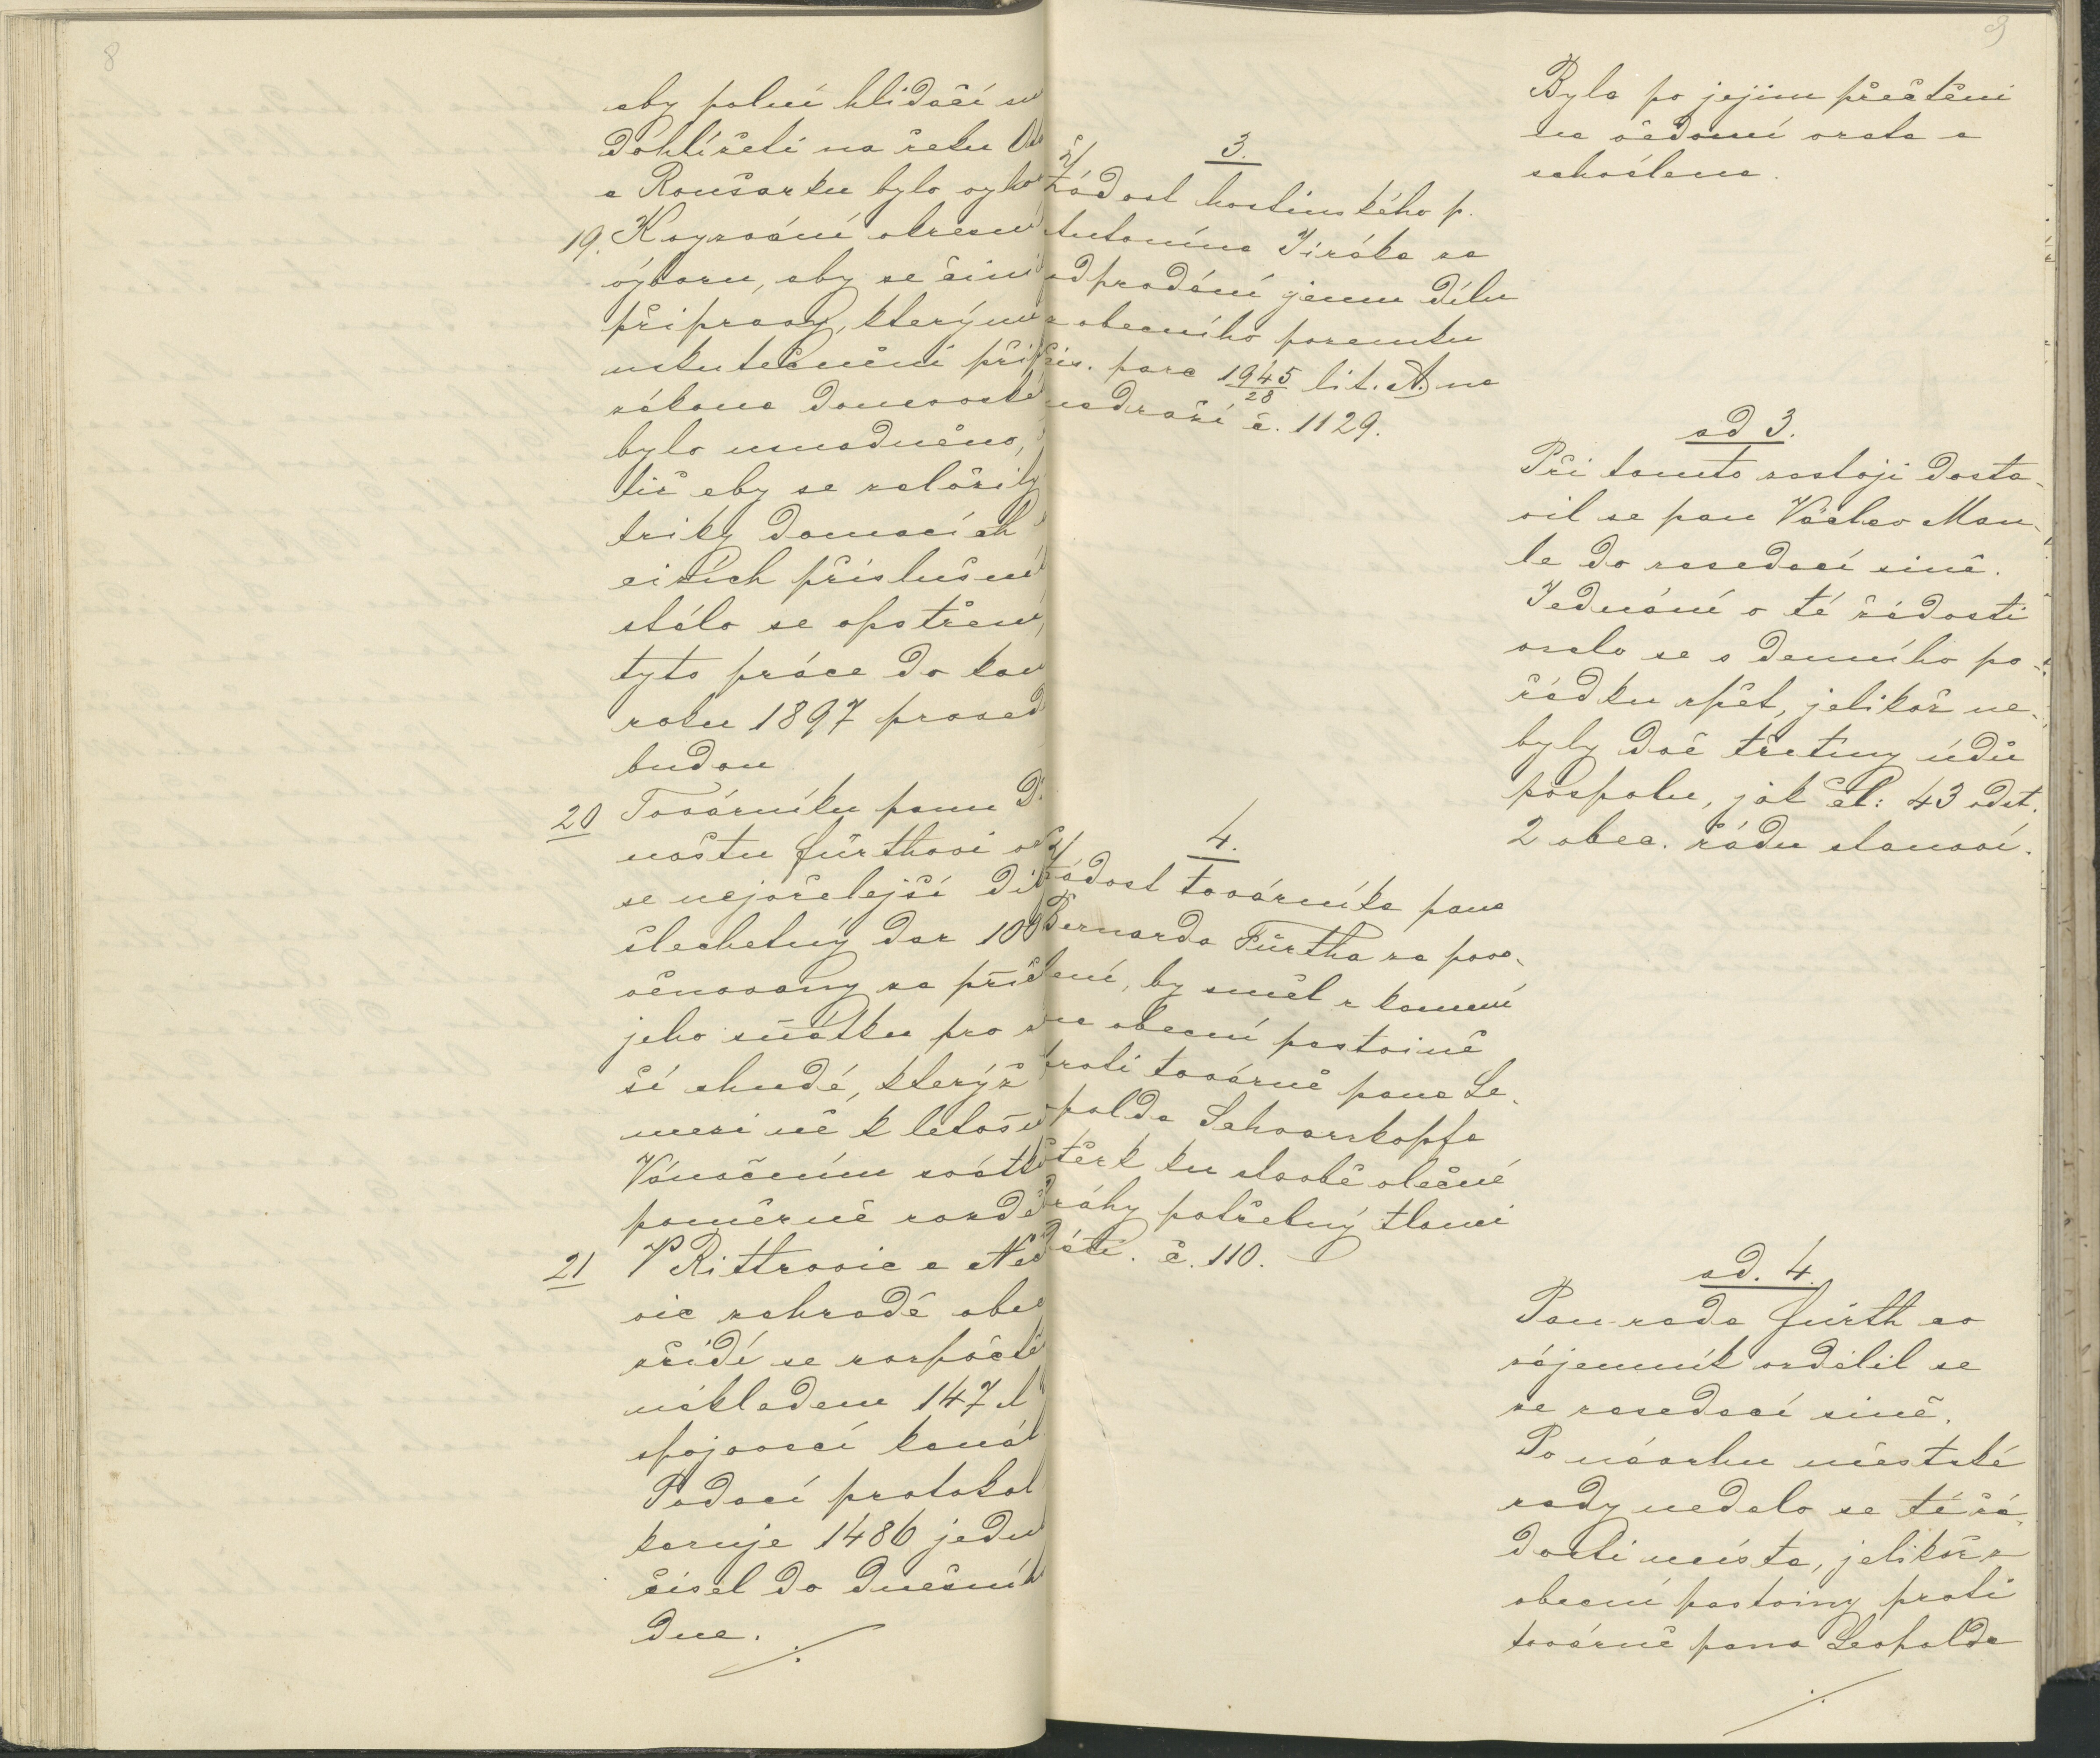 8
aby polní hlídači
dohlížeti na řeku
a Roušarku bylo
19. K vyzvání okresn
výboru, aby se čini
přípravy, kterým
uskutečnění při
zákona domovsk
bylo usnadněno,
tiž aby se založily
triky domacích
cizích příslušn
stálo se opatřen
tyto práce do kon
roku 1897 proved
budou
20 Továrníku panu
noštu Fürthovi
se nejvřelejší dík
šlechetný dar 100
věnovaný za příč
jeho sňatku pro
ší chudé, kterýž
mezi ně k letošn
Vánočním svátk
poměrně rozdě
21 V Rittrovic a Ned
vic zahradě obe
zřídí se rozpočt
nákladem 147 zl
spojovací kanál
Podací protokol
kazuje 1486 jedn
čísel do dnešníh
dne.
9
3.
Žádost hostinského p.
Antonína Jiráka za
odprodání jemu dílu
z obecního pozemku
čís. parc 1945/28 lit. A. na
nádraží č. 1129.
4.
Žádost továrníka pana
Bernarda Fürtha za povo-
lení, by směl z kamení
na obecní pastvině
proti továrně pana Le-
opolda Schwarzkopfa
štěrk ku stavbě vlečné
dráhy potřebný tlouci
dáti. č. 110.
Byla po jejím přečtění
na vědomí vzata a
schválena.
ad 3.
Při tomto zástoji dosta-
vil se pan Václav Man-
le do zasedací síně.
Jednání o té žádosti
vzalo se s denního po-
řádku zpět, jelikož ne-
byly dvě třetiny údů
pospolu, jak čl: 43 odst.
2 obec. řádu stanoví.
ad. 4.
Pan rada Fürth co
zájemník vzdálil se
ze zasedací síně.
Po návrhu městské
rady nedalo se té žá-
dosti místa, jelikož z
obecní pastviny proti
továrně pana Leopolda